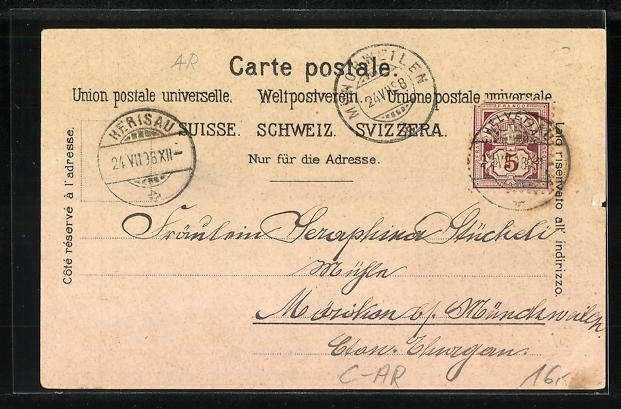 AR
Carte postale.
Union postale universelle. Weltpostverein. Unione postale universale.
SUISSE. SCHWEIZ. SVIZZERA.
Nur für die Adresse.
Côté réservé à l'adresse.
Lato riservato all' indirizzo.
HERISAU
24.VII.98.XII-
MÜNCHWEILEN
24.VII.98
FRANCO
5
Fräulein Seraphina Stücheli
Mühle
Mörikon b/ Münchwilen
Cton. Thurgau.
C-AR
16.-